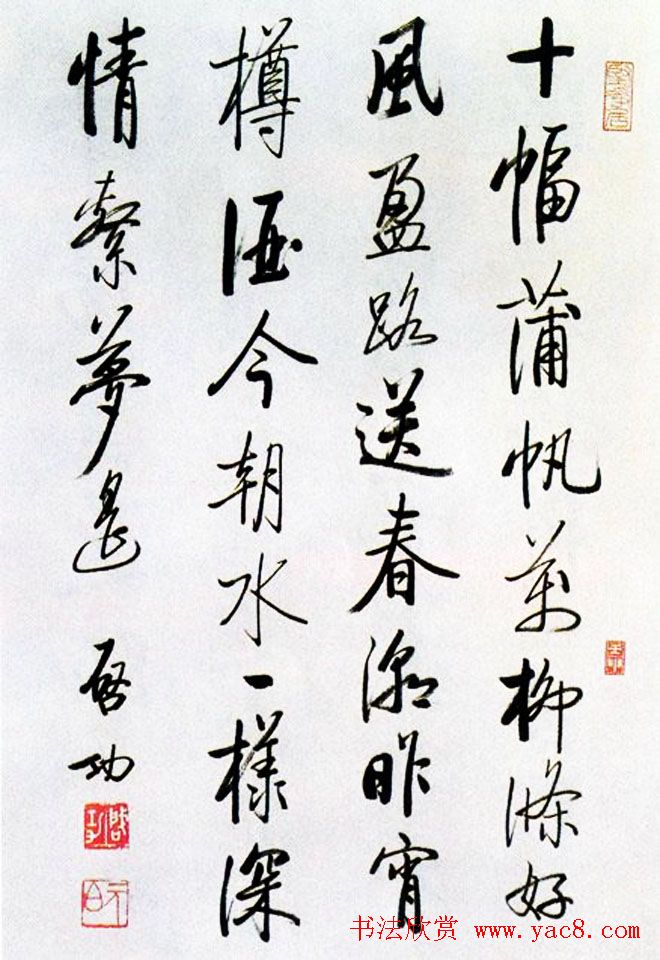 十幅蒲帆萬柳條好
風盈路送春潮昨宵
樽酒今朝水一樣深
情縈夢遙
启功
启功
元白
书法欣赏 www.yac8.com